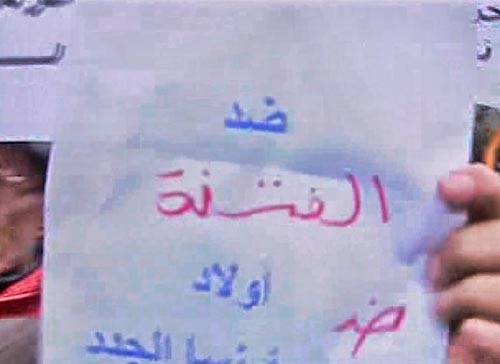 ضد
الفتنة
أولاد
ضد
فرنسا الجدد